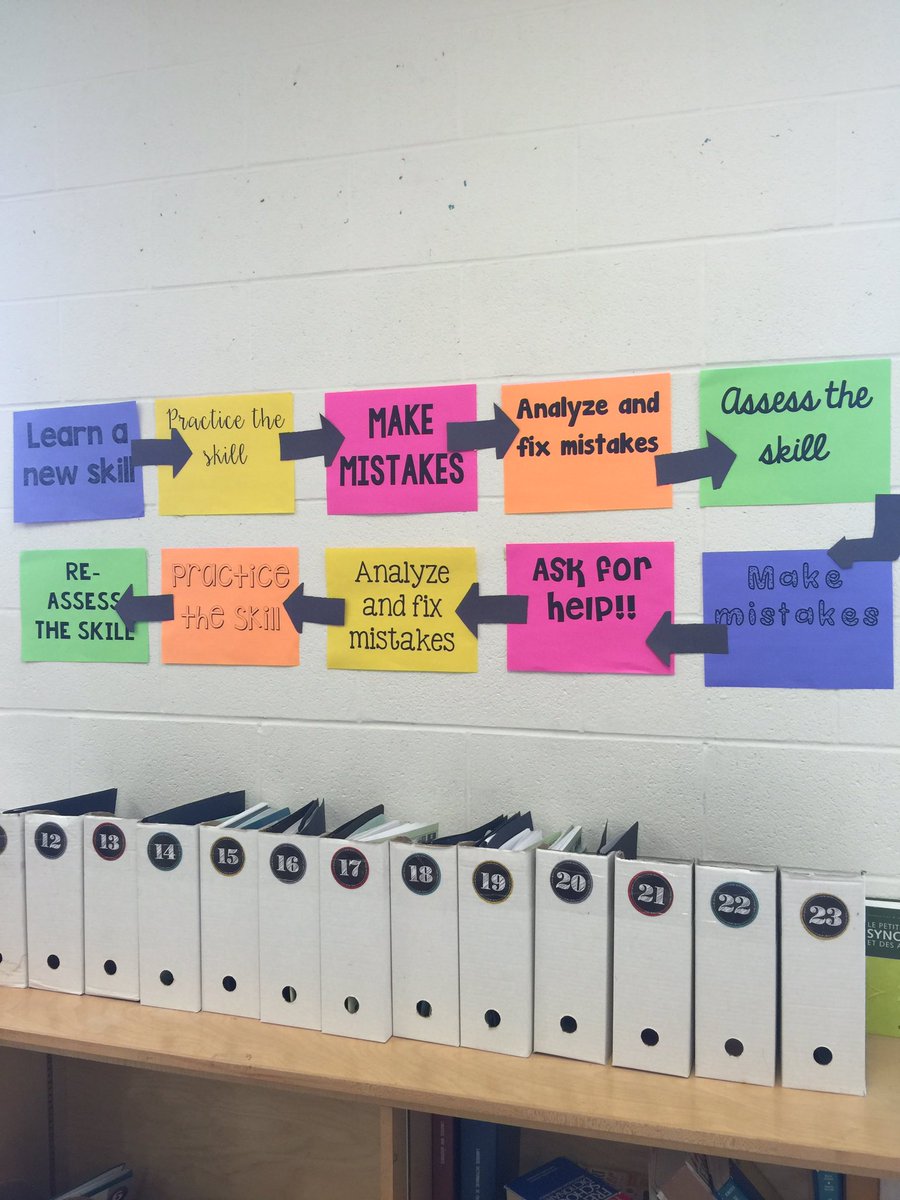 Learn a
new skill
Practice the
skill
MAKE
MISTAKES
Analyze and
fix mistakes
Assess the
skill
Make
mistakes
ASK for
help!!
Analyze
and fix
mistakes
Practice
the skill
RE-
ASSESS
THE SKILL
12
13
14
15
16
17
18
19
20
21
22
23
LE PETIT
ET DES